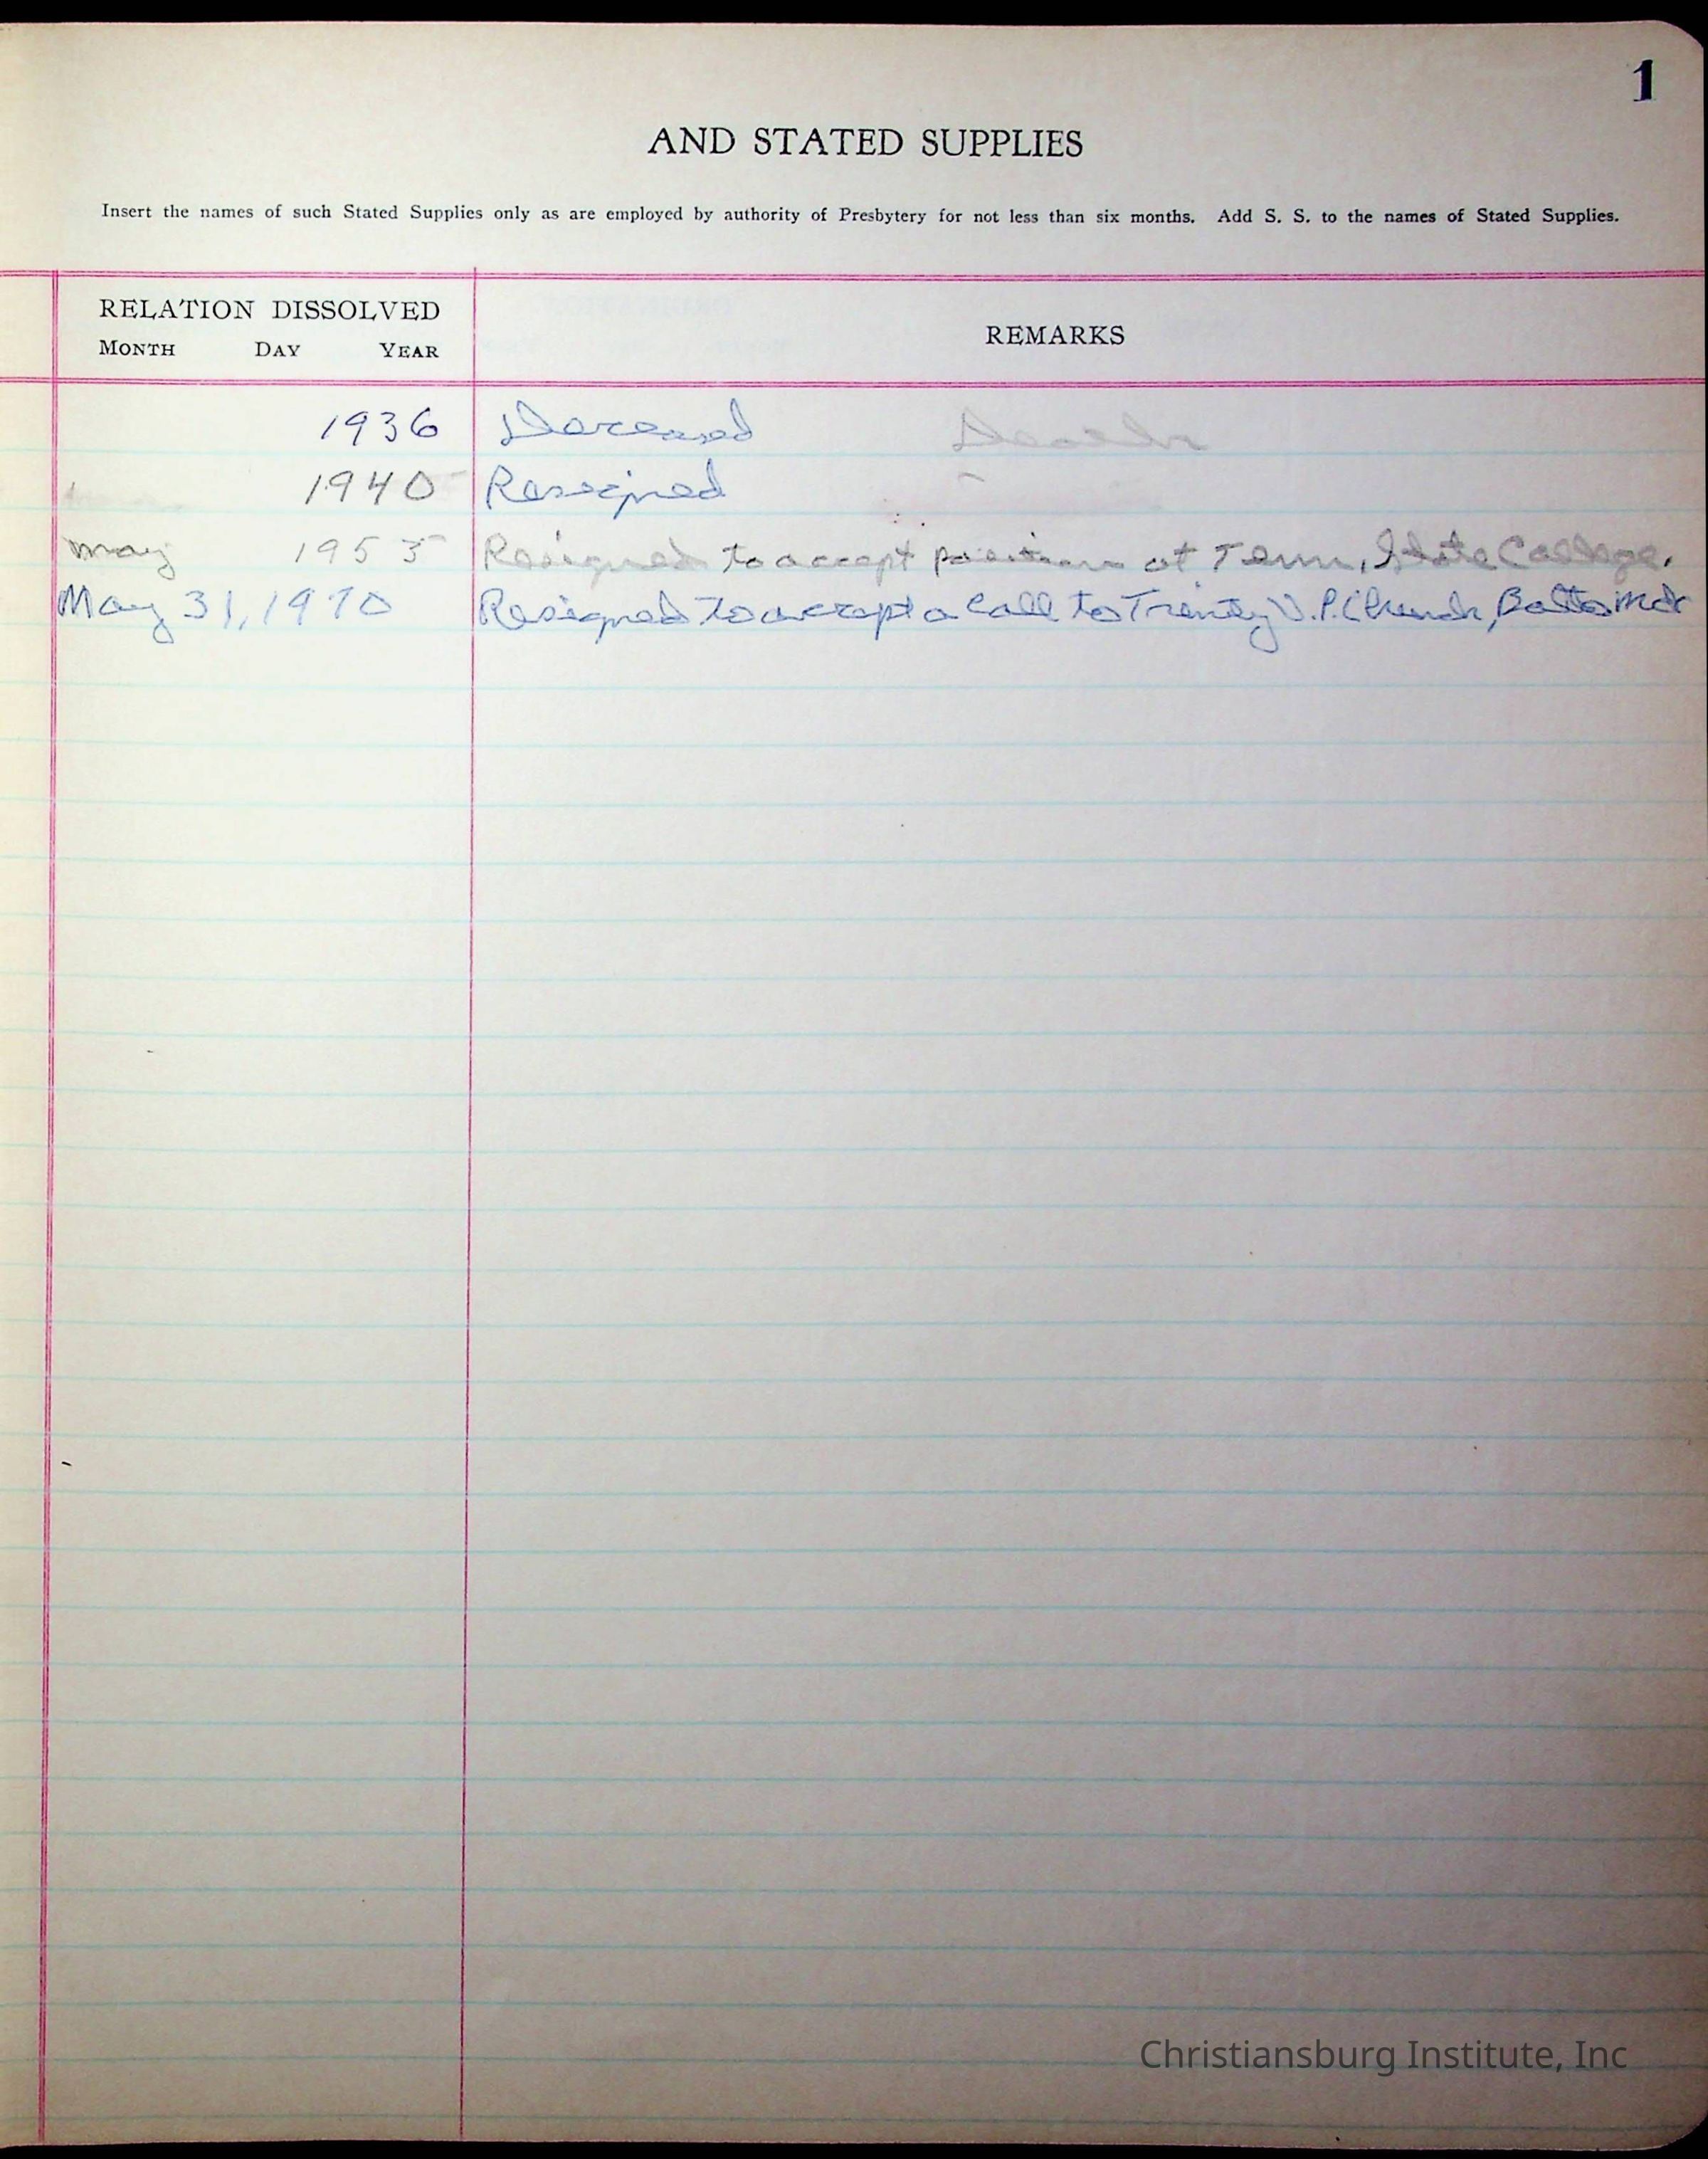 1
AND STATED SUPPLIES
Insert the names of such Stated Supplies only as are employed by authority of Presbytery for not less than six months. Add S. S. to the names of Stated Supplies.
RELATION DISSOLVED
MONTH DAY YEAR
REMARKS
1936 Deceased Death
1940 Resigned
May 1953 Resigned to accept position at Tenn, State College.
May 31, 1970 Resigned to accept a Call to Trinity U.P. Church, Balto Md
Christiansburg Institute, Inc